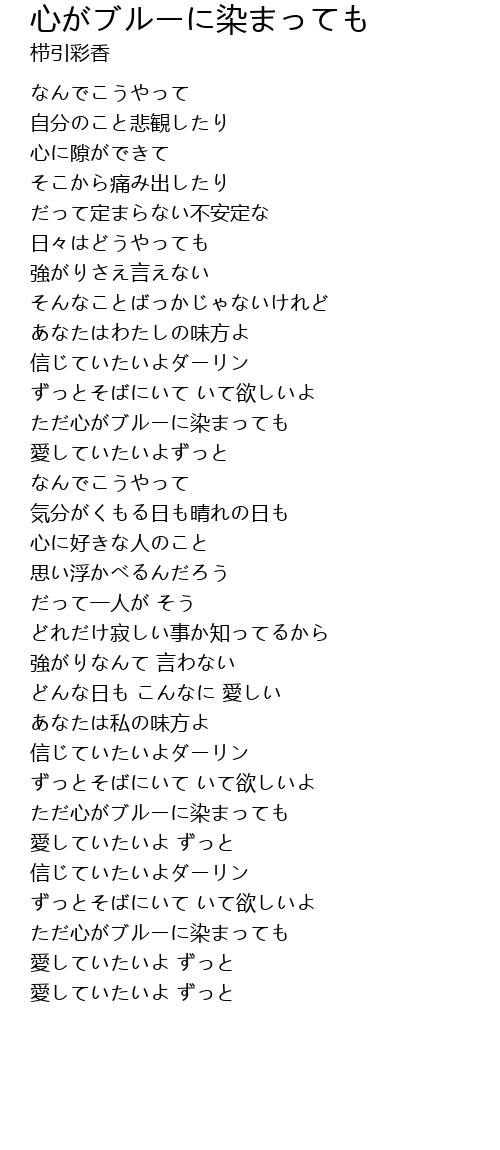 心がブルーに染まっても
栉引彩香
なんでこうやって
自分のこと悲観したり
心に隙ができて
そこから痛み出したり
だって定まらない不安定な
日々はどうやっても
強がりさえ言えない
そんなことばっかじゃないけれど
あなたはわたしの味方よ
信じていたいよダーリン
ずっとそばにいて いて欲しいよ
ただ心がブルーに染まっても
愛していたいよずっと
なんでこうやって
気分がくもる日も晴れの日も
心に好きな人のこと
思い浮かべるんだろう
だって一人が そう
どれだけ寂しい事か知ってるから
強がりなんて 言わない
どんな日も こんなに 愛しい
あなたは私の味方よ
信じていたいよダーリン
ずっとそばにいて いて欲しいよ
ただ心がブルーに染まっても
愛していたいよ ずっと
信じていたいよダーリン
ずっとそばにいて いて欲しいよ
ただ心がブルーに染まっても
愛していたいよ ずっと
愛していたいよ ずっと